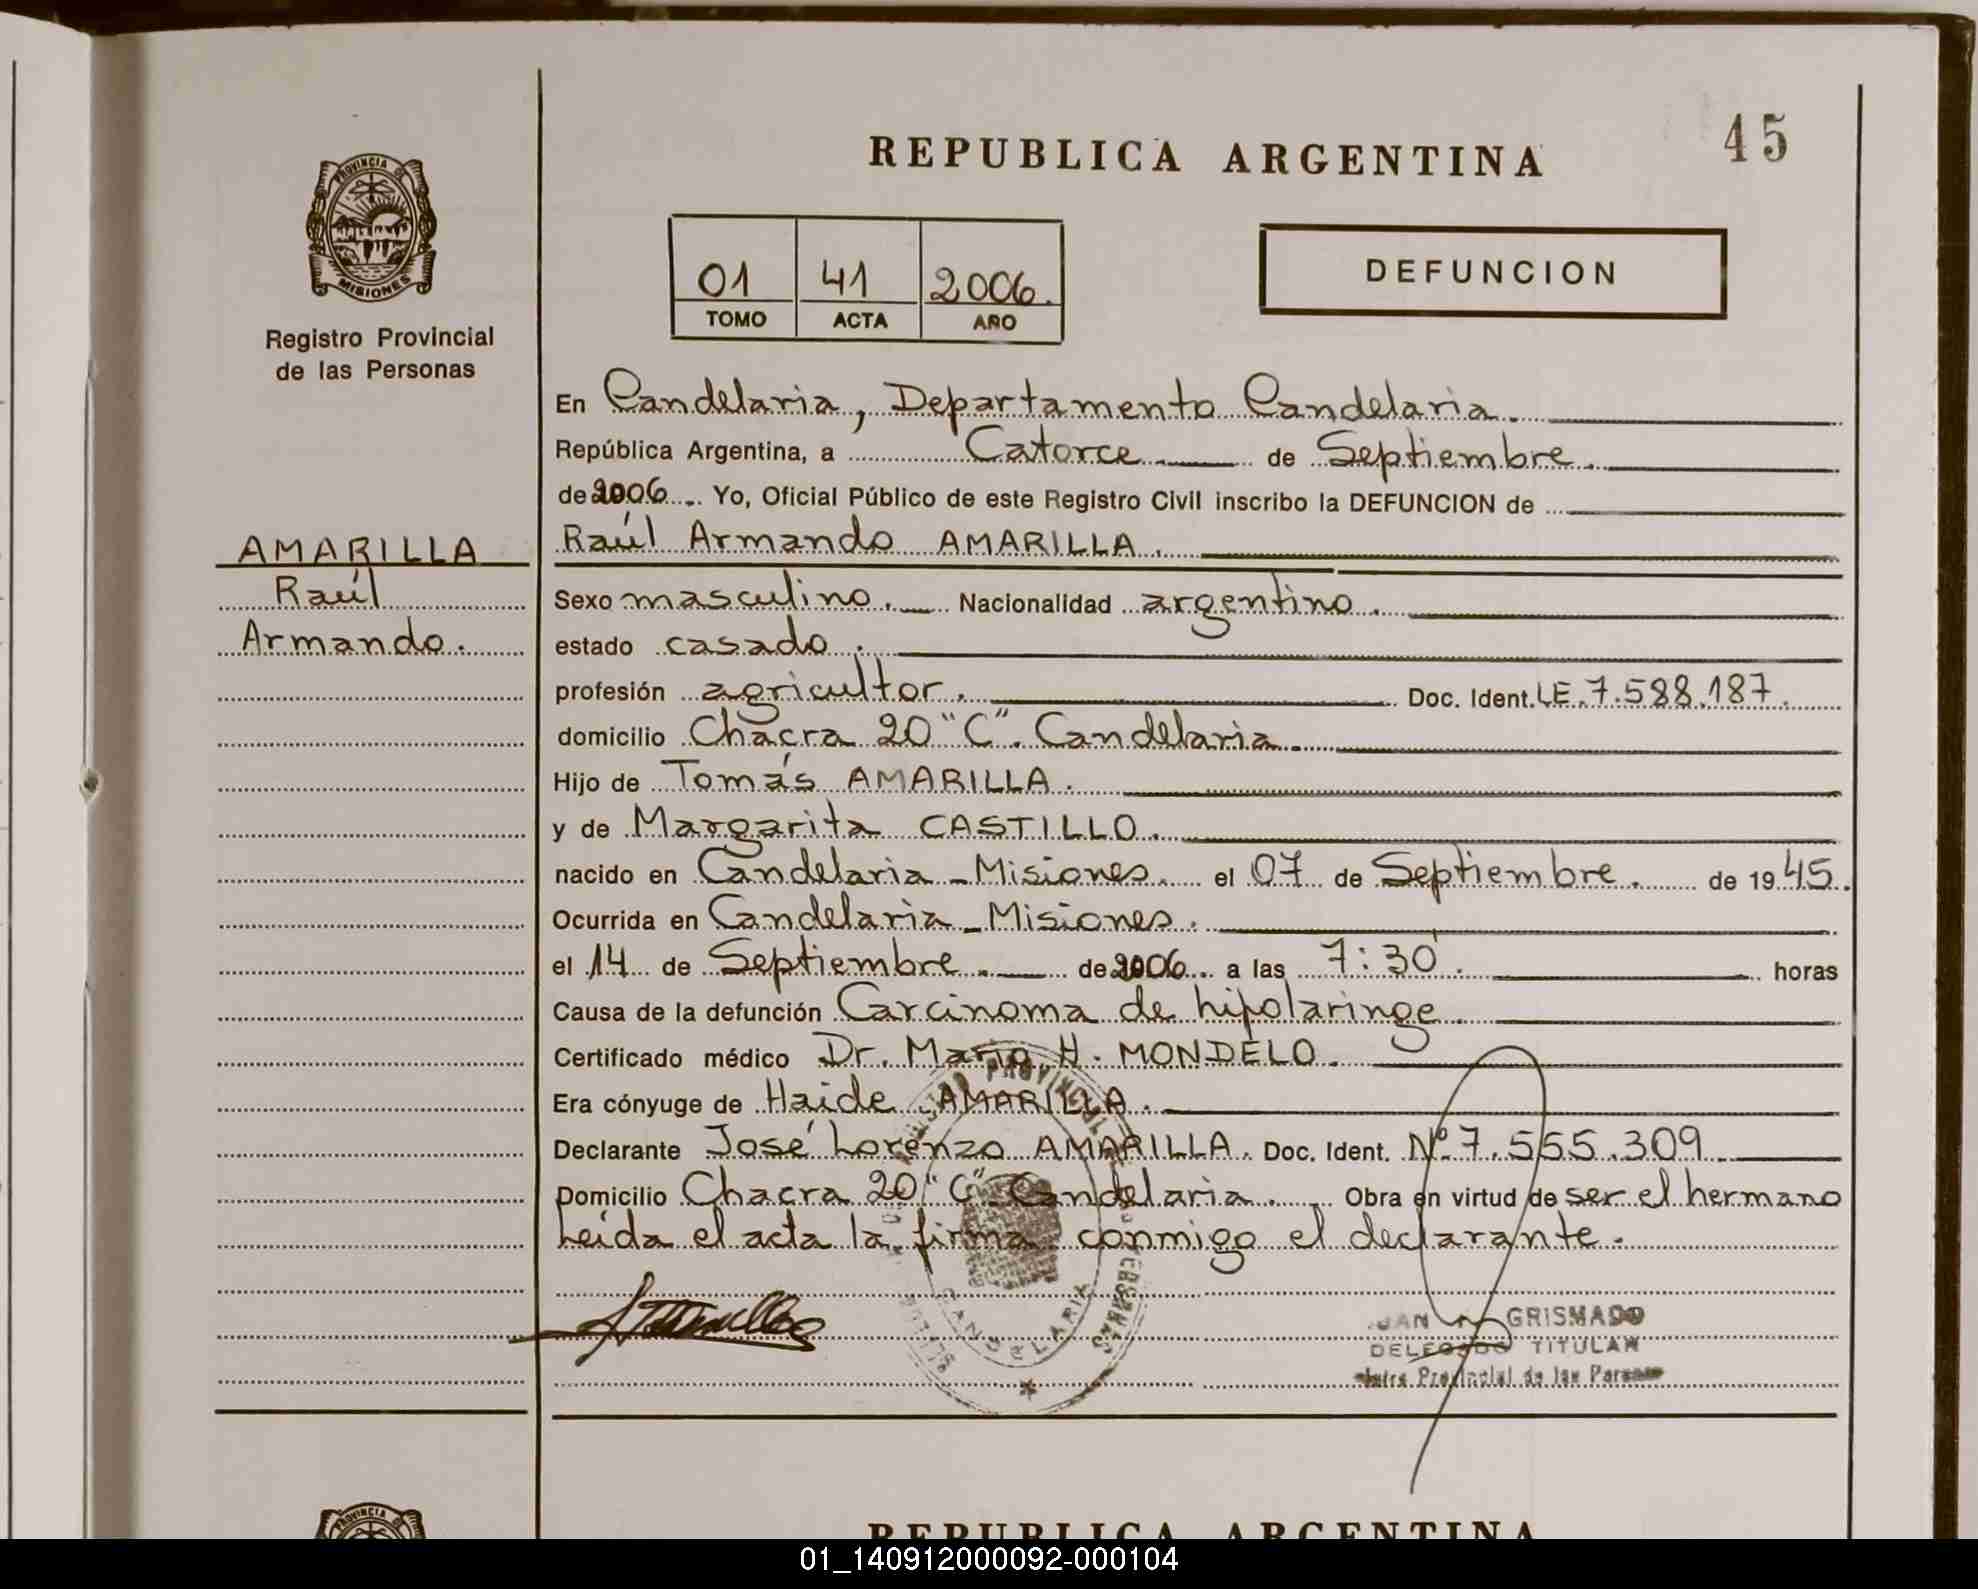 45
REPUBLICA ARGENTINA
PROVINCIA DE
MISIONES
Registro Provincial
de las Personas
01 41 2006.
TOMO ACTA AÑO
DEFUNCION
En Candelaria, Departamento Candelaria.
República Argentina, a Catorce de Septiembre.
de 2006. Yo, Oficial Público de este Registro Civil inscribo la DEFUNCION de
AMARILLA
Raúl
Armando.
Raúl Armando AMARILLA.
Sexo masculino. Nacionalidad argentino.
estado casado.
profesión agricultor. Doc. Ident. LE. 7.588.187.
domicilio Chacra 20 "C". Candelaria.
Hijo de Tomás AMARILLA.
y de Margarita CASTILLO.
nacido en Candelaria - Misiones. el 07 de Septiembre. de 1945.
Ocurrida en Candelaria - Misiones.
el 14 de Septiembre. de 2006. a las 7:30'. horas
Causa de la defunción Carcinoma de hipolaringe.
Certificado médico Dr. Mario H. MONDELO.
Era cónyuge de Haide AMARILLA.
Declarante José Lorenzo AMARILLA. Doc. Ident. Nº 7.555.309
Domicilio Chacra 20 "C" Candelaria. Obra en virtud de ser el hermano
Leída el acta la firma conmigo el declarante.
PROVINCIAL
CANDELARIA
JUAN GRISMADO
DELEGADO TITULAR
Provincial de las Personas
PROVINCIA
REPUBLICA ARGENTINA
01_140912000092-000104